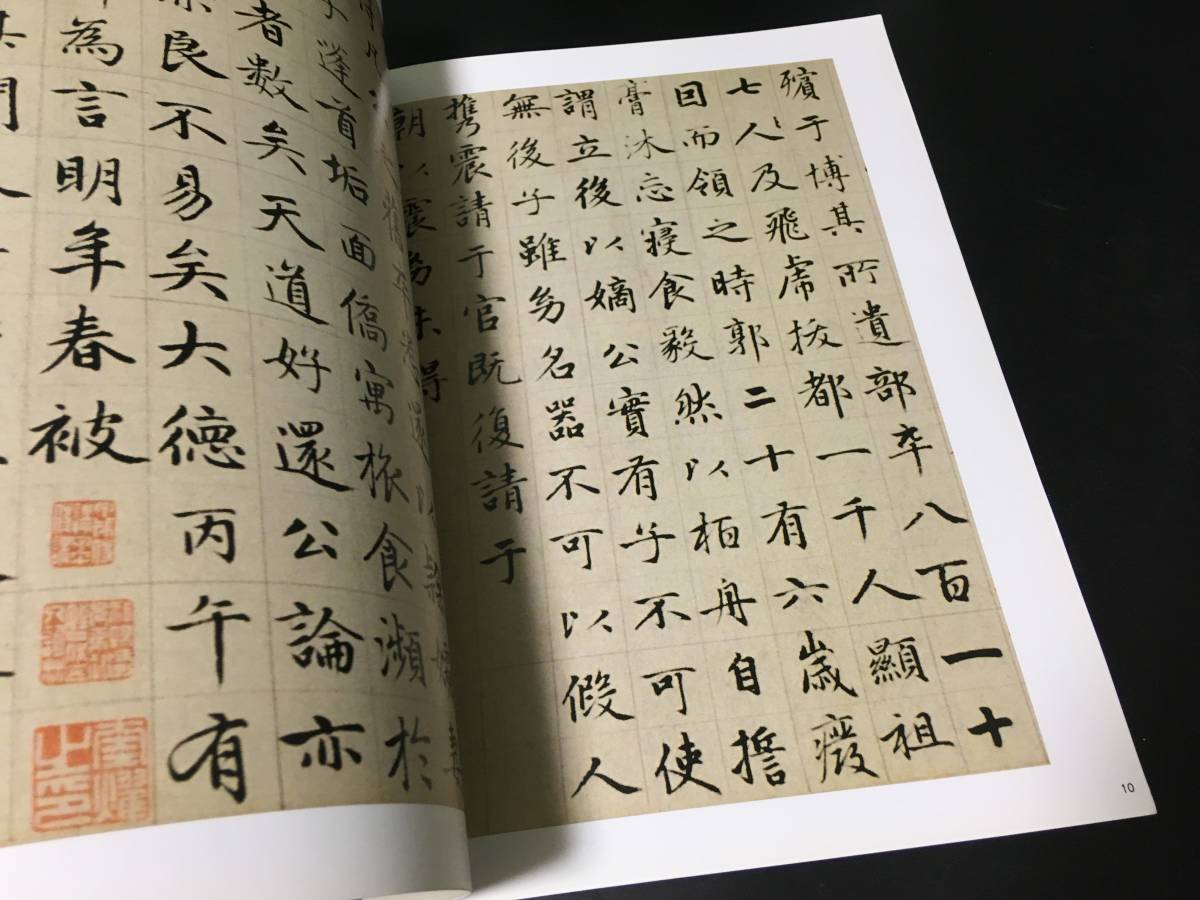 殯于博其所遺部卒八百一十
七人及飛虎拔都一千人顯祖
回而領之時郭二十有六歲癈
膏沐忘寢食毅然以栢舟自誓
謂立後以嫡公實有子不可使
無後子雖幼名器不可以假人
携震請于官既復請于
朝以震幼未得
10
子蓬首垢面僑寓旅食瀕於
者數矣天道好還公論亦
良不易矣大德丙午有
為言明年春被
門